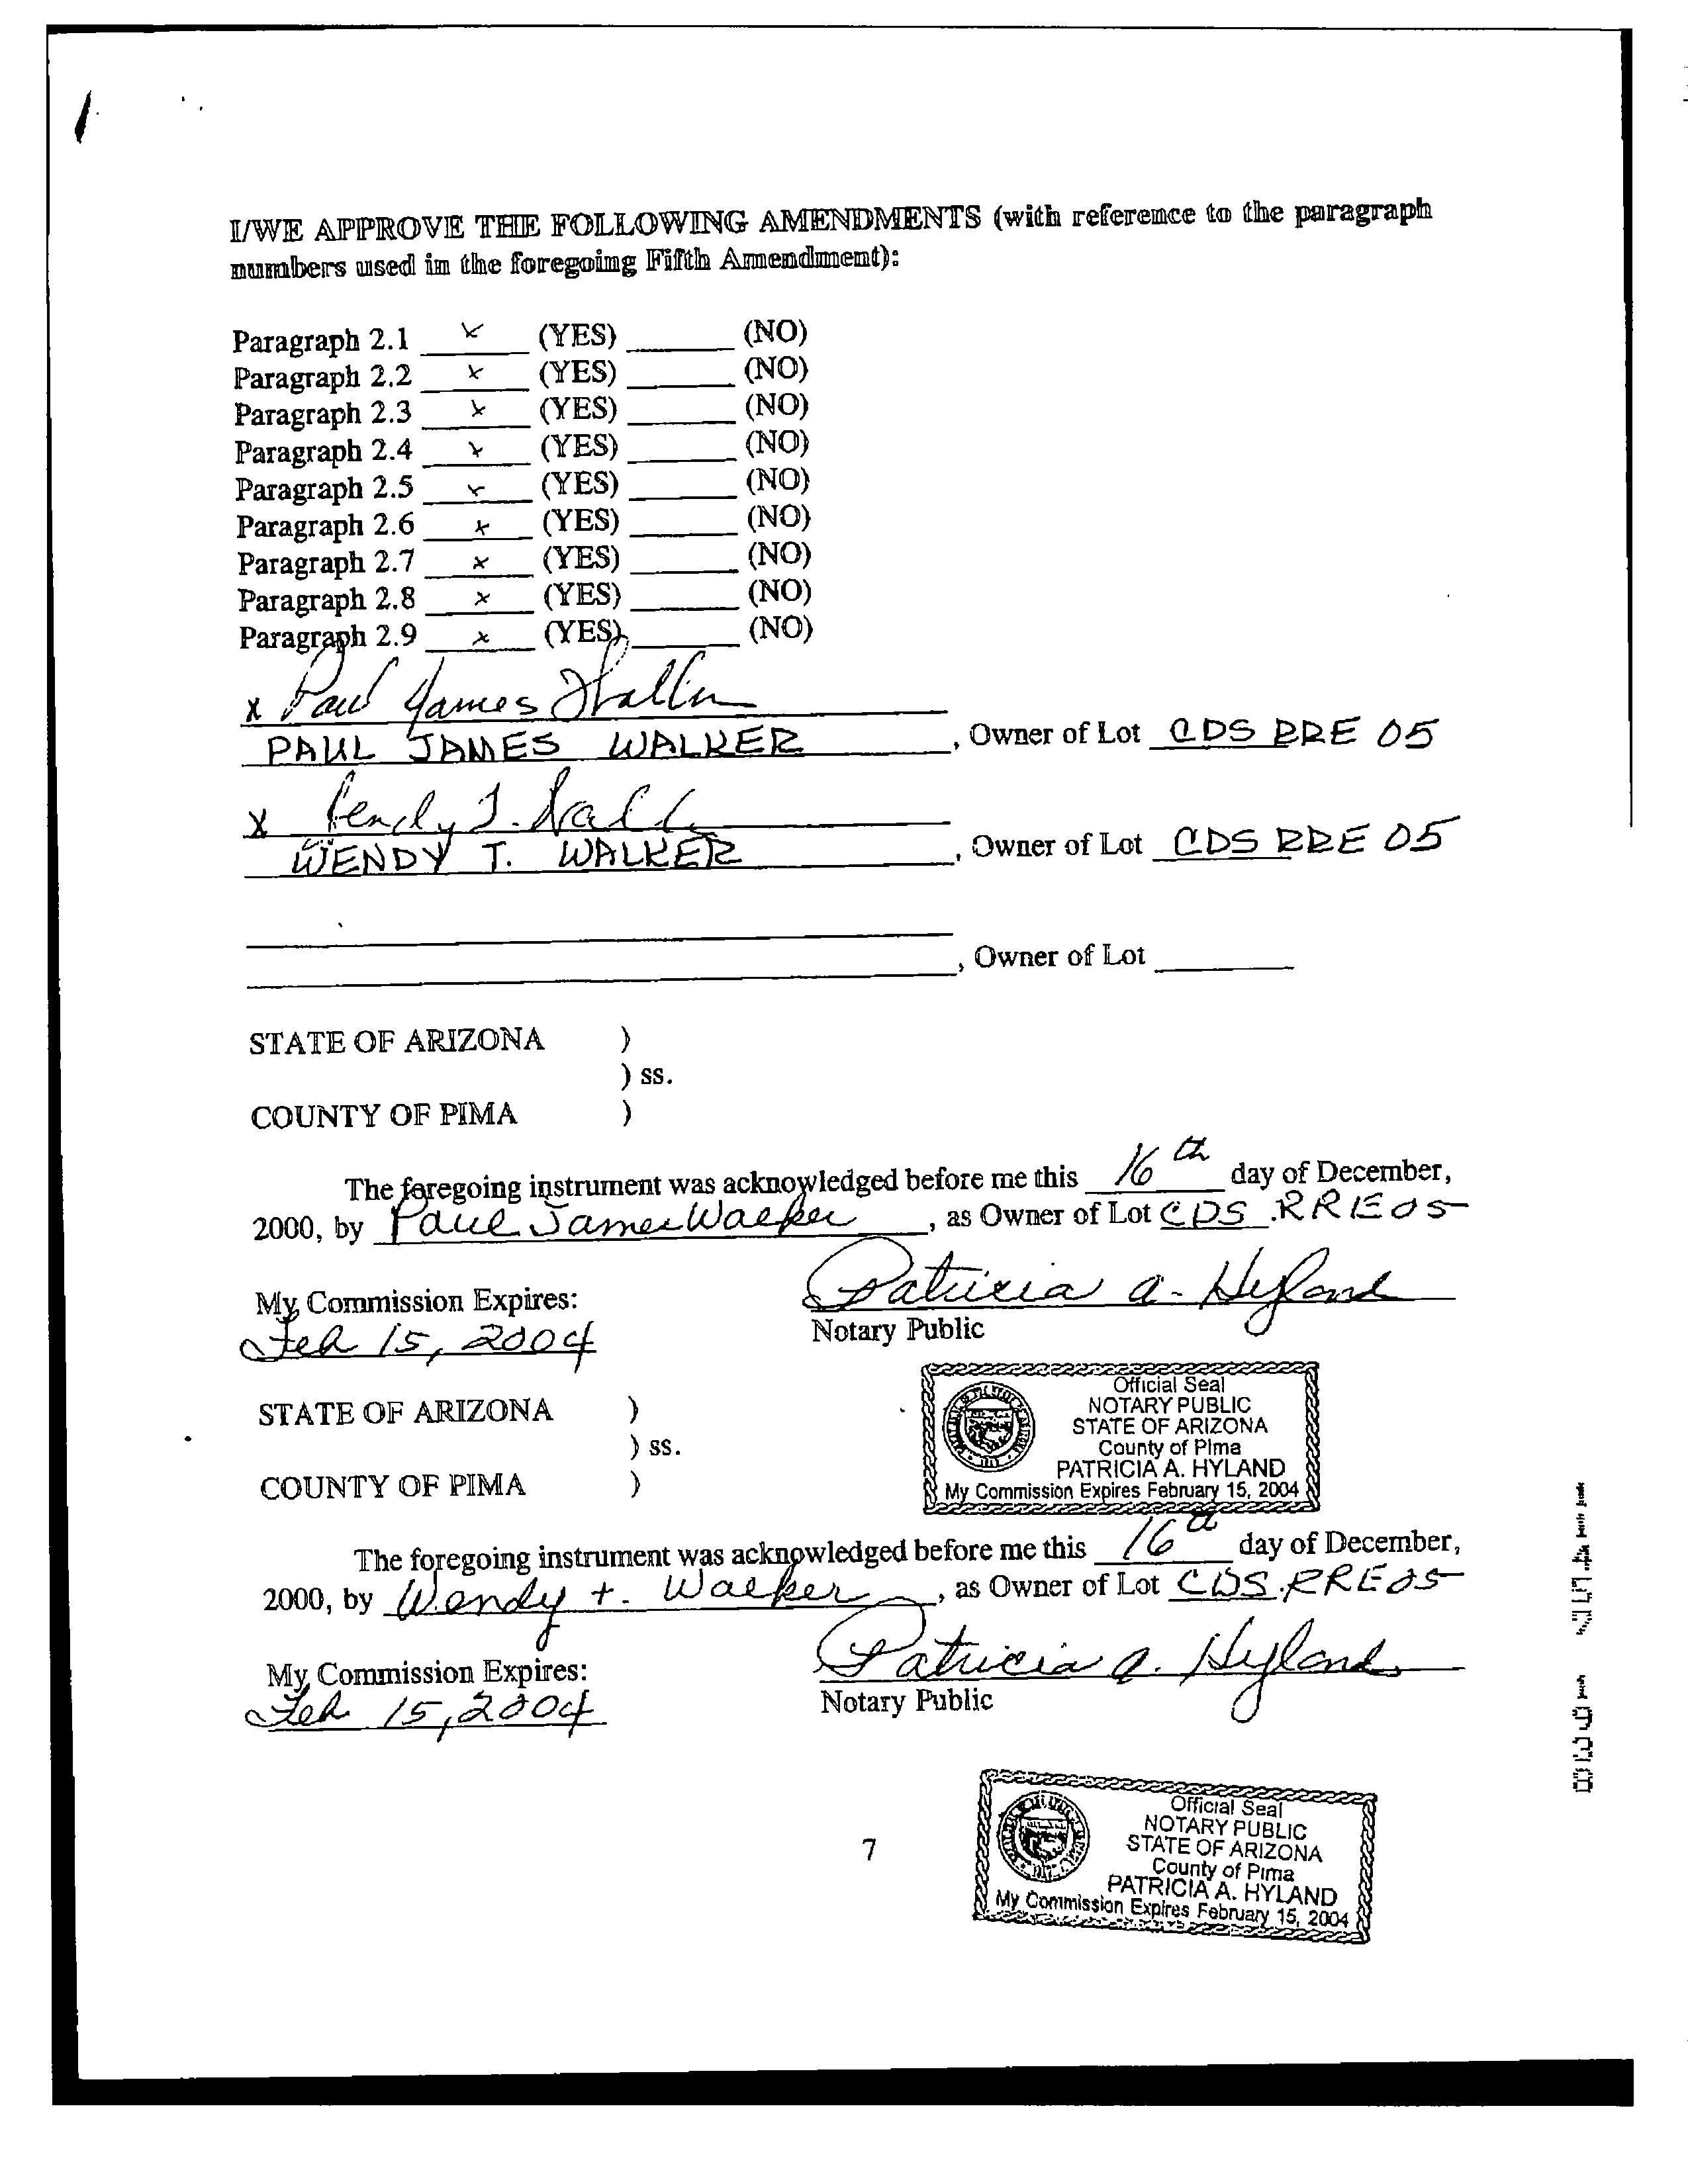 I/WE APPROVE THE FOLLOWING AMENDMENTS (with reference to the paragraph
numbers used in the foregoing Fifth Amendment):
Paragraph 2.1 x (YES) ______ (NO)
Paragraph 2.2 x (YES) ______ (NO)
Paragraph 2.3 x (YES) ______ (NO)
Paragraph 2.4 x (YES) ______ (NO)
Paragraph 2.5 x (YES) ______ (NO)
Paragraph 2.6 x (YES) ______ (NO)
Paragraph 2.7 x (YES) ______ (NO)
Paragraph 2.8 x (YES) ______ (NO)
Paragraph 2.9 x (YES) ______ (NO)
x Paul James Walker
PAUL JAMES WALKER, Owner of Lot CDS RRE 05
x Wendy T. Walker
WENDY T. WALKER, Owner of Lot CDS RRE 05
, Owner of Lot ______
STATE OF ARIZONA )
) ss.
COUNTY OF PIMA )
The foregoing instrument was acknowledged before me this 16th day of December,
2000, by Paul James Walker, as Owner of Lot CDS RRE05
Patricia A. Hyland
My Commission Expires:
Notary Public
Feb 15, 2004
Official Seal
NOTARY PUBLIC
STATE OF ARIZONA
County of Pima
PATRICIA A. HYLAND
My Commission Expires February 15, 2004
STATE OF ARIZONA )
) ss.
COUNTY OF PIMA )
The foregoing instrument was acknowledged before me this 16th day of December,
2000, by Wendy t. Walker, as Owner of Lot CDS.RRE05
Patricia A. Hyland
My Commission Expires:
Notary Public
Feb 15, 2004
7
Official Seal
NOTARY PUBLIC
STATE OF ARIZONA
County of Pima
PATRICIA A. HYLAND
My Commission Expires February 15, 2004